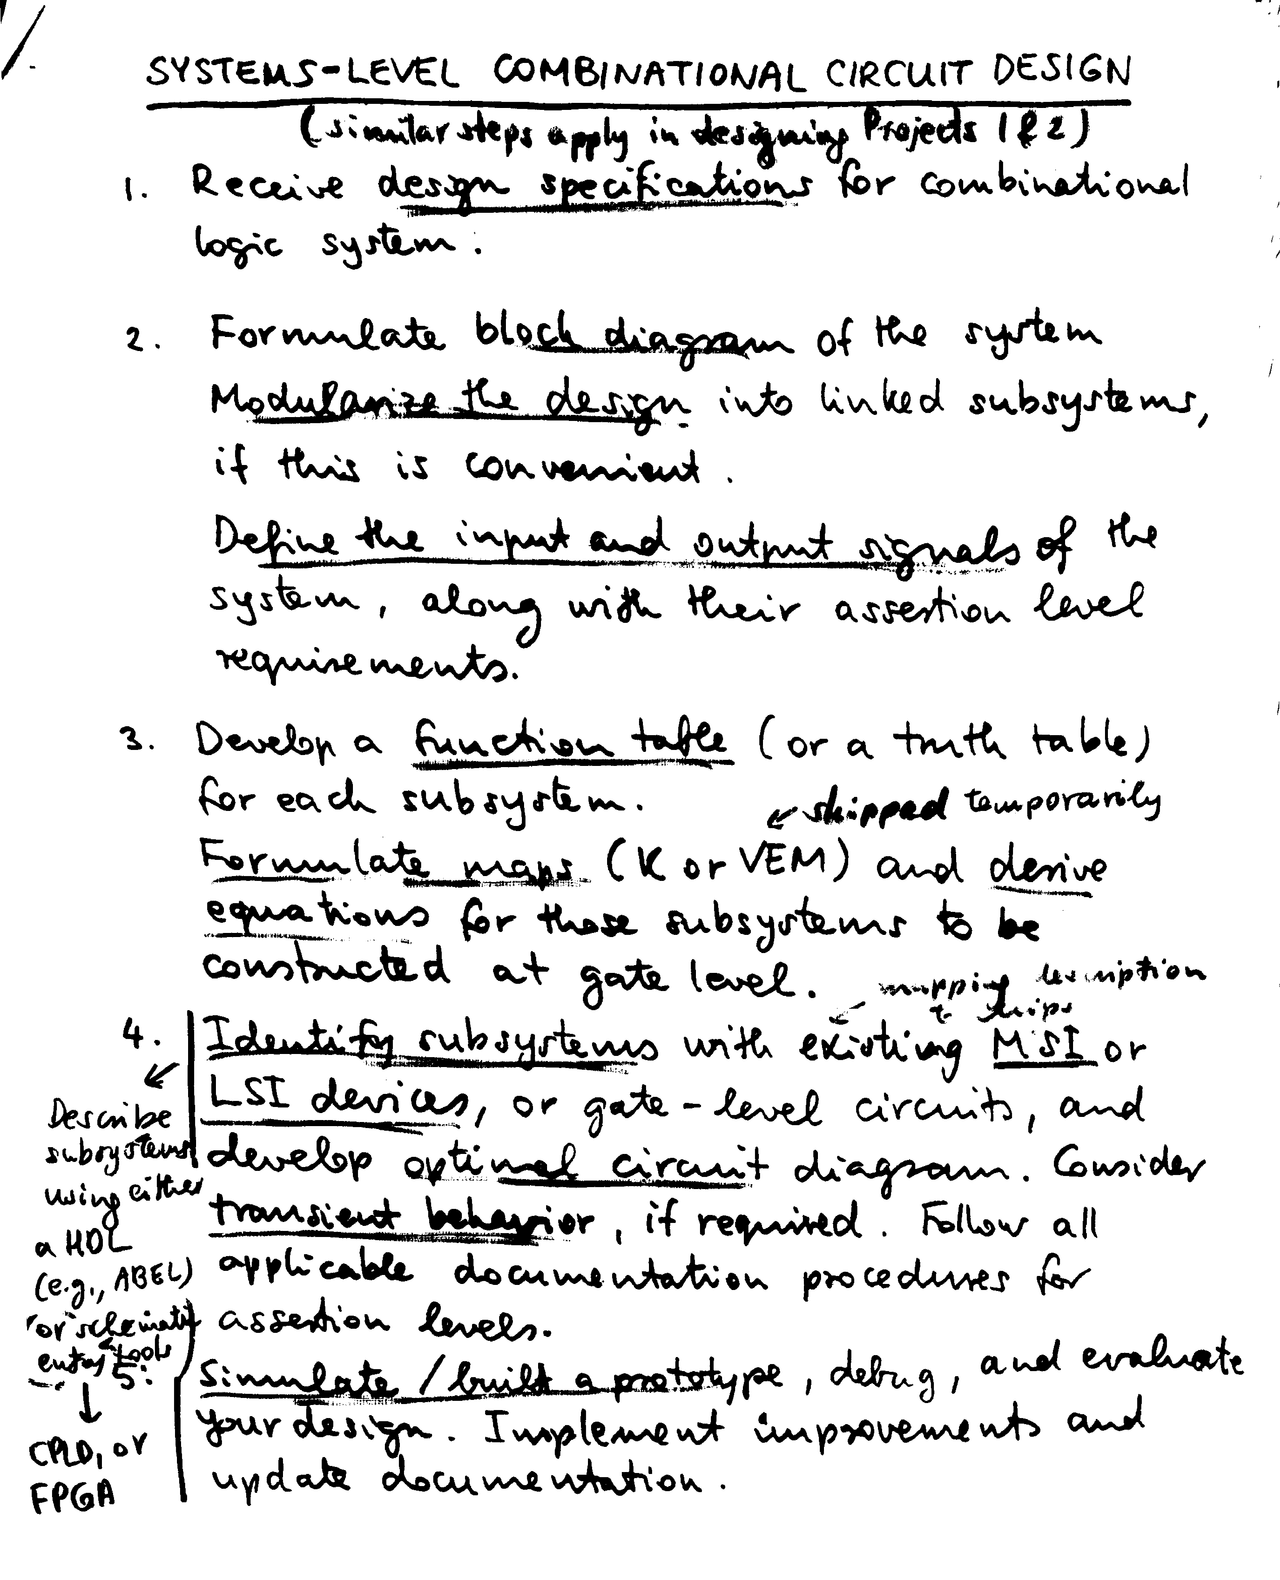 SYSTEMS-LEVEL COMBINATIONAL CIRCUIT DESIGN
(similar steps apply in designing Projects 1 & 2)
1. Receive design specifications for combinational
logic system.
2. Formulate block diagram of the system
Modularize the design into linked subsystems,
if this is convenient.
Define the input and output signals of the
system, along with their assertion level
requirements.
3. Develop a function table (or a truth table)
for each subsystem.
↙ skipped temporarily
Formulate maps (K or VEM) and derive
equations for those subsystems to be
constructed at gate level.
↙ mapping description
to chips
4. Identify subsystems with existing MSI or
LSI devices, or gate-level circuits, and
develop optimal circuit diagram. Consider
transient behavior, if required. Follow all
applicable documentation procedures for
assertion levels.
↙
Describe
subsystems
using either
a HDL
(e.g., ABEL)
"or" schematic
entry tools
↓
CPLD, or
FPGA
5. Simulate / built a prototype, debug, and evaluate
your design. Implement improvements and
update documentation.